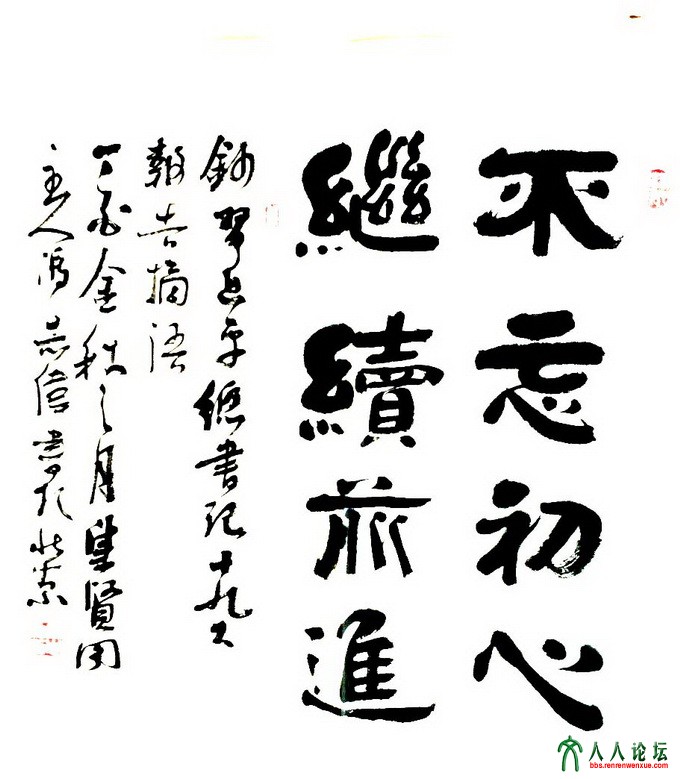 不忘初心
繼續前進
錄習近平總書記十九大
報告摘語
丁酉金秋之月集賢閣
主人馮志信書於北京
人人论坛
bbs.renrenwenxue.com